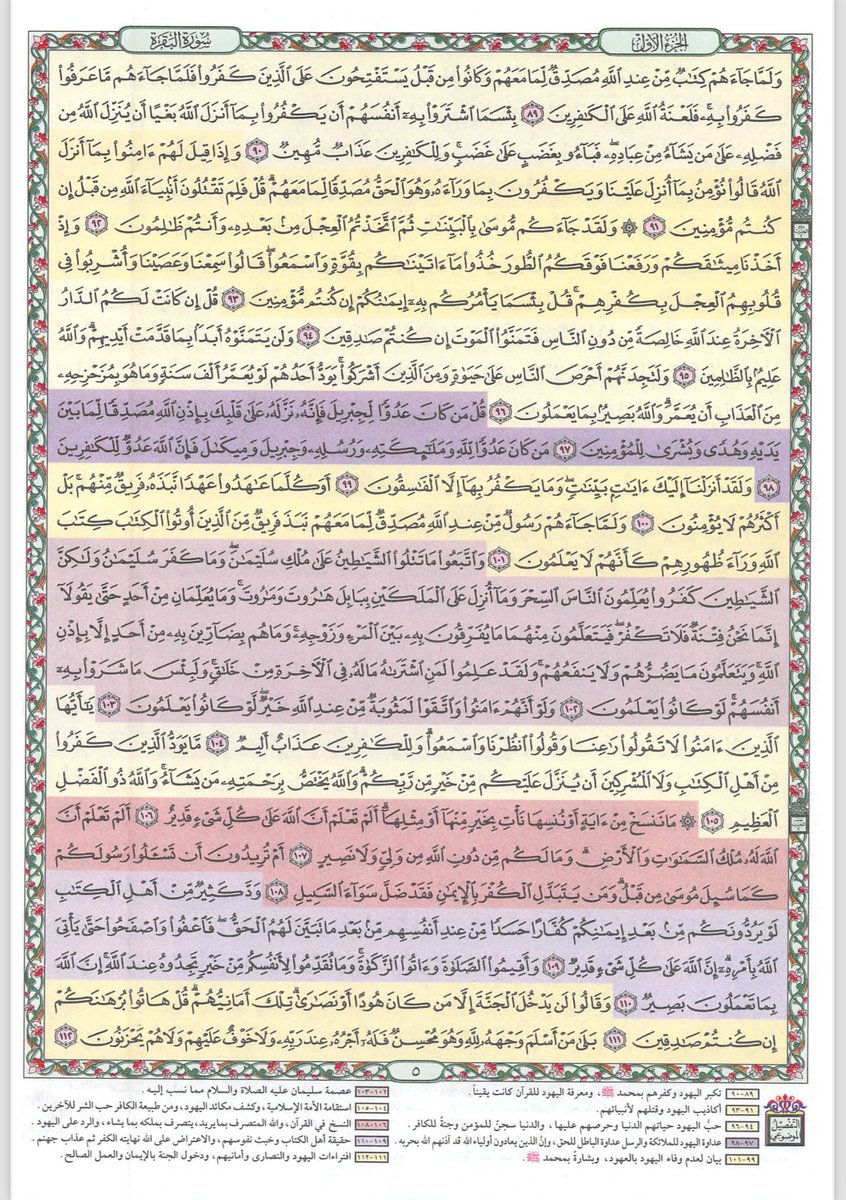 الجُزْءُ الأَوَّلُ
سُورَةُ البَقَرَةِ
وَلَمَّا جَآءَهُمْ كِتَٰبٌ مِّنْ عِندِ ٱللَّهِ مُصَدِّقٌ لِّمَا مَعَهُمْ وَكَانُوا۟ مِن قَبْلُ يَسْتَفْتِحُونَ عَلَى ٱلَّذِينَ كَفَرُوا۟ فَلَمَّا جَآءَهُم مَّا عَرَفُوا۟
كَفَرُوا۟ بِهِۦ ۚ فَلَعْنَةُ ٱللَّهِ عَلَى ٱلْكَٰفِرِينَ ٨٩ بِئْسَمَا ٱشْتَرَوْا۟ بِهِۦٓ أَنفُسَهُمْ أَن يَكْفُرُوا۟ بِمَآ أَنزَلَ ٱللَّهُ بَغْيًا أَن يُنَزِّلَ ٱللَّهُ مِن
فَضْلِهِۦ عَلَىٰ مَن يَشَآءُ مِنْ عِبَادِهِۦ ۖ فَبَآءُو بِغَضَبٍ عَلَىٰ غَضَبٍ ۚ وَلِلْكَٰفِرِينَ عَذَابٌ مُّهِينٌ ٩٠ وَإِذَا قِيلَ لَهُمْ ءَامِنُوا۟ بِمَآ أَنزَلَ
ٱللَّهُ قَالُوا۟ نُؤْمِنُ بِمَآ أُنزِلَ عَلَيْنَا وَيَكْفُرُونَ بِمَا وَرَآءَهُۥ وَهُوَ ٱلْحَقُّ مُصَدِّقًا لِّمَا مَعَهُمْ ۗ قُلْ فَلِمَ تَقْتُلُونَ أَنۢبِيَآءَ ٱللَّهِ مِن قَبْلُ إِن
كُنتُم مُّؤْمِنِينَ ٩١ ۞ وَلَقَدْ جَآءَكُم مُّوسَىٰ بِٱلْبَيِّنَٰتِ ثُمَّ ٱتَّخَذْتُمُ ٱلْعِجْلَ مِنۢ بَعْدِهِۦ وَأَنتُمْ ظَٰلِمُونَ ٩٢ وَإِذْ
أَخَذْنَا مِيثَٰقَكُمْ وَرَفَعْنَا فَوْقَكُمُ ٱلطُّورَ خُذُوا۟ مَآ ءَاتَيْنَٰكُم بِقُوَّةٍ وَٱسْمَعُوا۟ ۖ قَالُوا۟ سَمِعْنَا وَعَصَيْنَا وَأُشْرِبُوا۟ فِى
قُلُوبِهِمُ ٱلْعِجْلَ بِكُفْرِهِمْ ۚ قُلْ بِئْسَمَا يَأْمُرُكُم بِهِۦٓ إِيمَٰنُكُمْ إِن كُنتُم مُّؤْمِنِينَ ٩٣ قُلْ إِن كَانَتْ لَكُمُ ٱلدَّارُ
ٱلْءَاخِرَةُ عِندَ ٱللَّهِ خَالِصَةً مِّن دُونِ ٱلنَّاسِ فَتَمَنَّوُا۟ ٱلْمَوْتَ إِن كُنتُمْ صَٰدِقِينَ ٩٤ وَلَن يَتَمَنَّوْهُ أَبَدًۢا بِمَا قَدَّمَتْ أَيْدِيهِمْ ۗ وَٱللَّهُ
عَلِيمٌۢ بِٱلظَّٰلِمِينَ ٩٥ وَلَتَجِدَنَّهُمْ أَحْرَصَ ٱلنَّاسِ عَلَىٰ حَيَوٰةٍ وَمِنَ ٱلَّذِينَ أَشْرَكُوا۟ ۚ يَوَدُّ أَحَدُهُمْ لَوْ يُعَمَّرُ أَلْفَ سَنَةٍ وَمَا هُوَ بِمُزَحْزِحِهِۦ
مِنَ ٱلْعَذَابِ أَن يُعَمَّرَ ۗ وَٱللَّهُ بَصِيرٌۢ بِمَا يَعْمَلُونَ ٩٦ قُلْ مَن كَانَ عَدُوًّا لِّجِبْرِيلَ فَإِنَّهُۥ نَزَّلَهُۥ عَلَىٰ قَلْبِكَ بِإِذْنِ ٱللَّهِ مُصَدِّقًا لِّمَا بَيْنَ
يَدَيْهِ وَهُدًى وَبُشْرَىٰ لِلْمُؤْمِنِينَ ٩٧ مَن كَانَ عَدُوًّا لِّلَّهِ وَمَلَٰٓئِكَتِهِۦ وَرُسُلِهِۦ وَجِبْرِيلَ وَمِيكَىٰلَ فَإِنَّ ٱللَّهَ عَدُوٌّ لِّلْكَٰفِرِينَ
٩٨ وَلَقَدْ أَنزَلْنَآ إِلَيْكَ ءَايَٰتٍۭ بَيِّنَٰتٍ ۖ وَمَا يَكْفُرُ بِهَآ إِلَّا ٱلْفَٰسِقُونَ ٩٩ أَوَكُلَّمَا عَٰهَدُوا۟ عَهْدًا نَّبَذَهُۥ فَرِيقٌ مِّنْهُم ۚ بَلْ
أَكْثَرُهُمْ لَا يُؤْمِنُونَ ١٠٠ وَلَمَّا جَآءَهُمْ رَسُولٌ مِّنْ عِندِ ٱللَّهِ مُصَدِّقٌ لِّمَا مَعَهُمْ نَبَذَ فَرِيقٌ مِّنَ ٱلَّذِينَ أُوتُوا۟ ٱلْكِتَٰبَ كِتَٰبَ
ٱللَّهِ وَرَآءَ ظُهُورِهِمْ كَأَنَّهُمْ لَا يَعْلَمُونَ ١٠١ وَٱتَّبَعُوا۟ مَا تَتْلُوا۟ ٱلشَّيَٰطِينُ عَلَىٰ مُلْكِ سُلَيْمَٰنَ ۖ وَمَا كَفَرَ سُلَيْمَٰنُ وَلَٰكِنَّ
ٱلشَّيَٰطِينَ كَفَرُوا۟ يُعَلِّمُونَ ٱلنَّاسَ ٱلسِّحْرَ وَمَآ أُنزِلَ عَلَى ٱلْمَلَكَيْنِ بِبَابِلَ هَٰرُوتَ وَمَٰرُوتَ ۚ وَمَا يُعَلِّمَانِ مِنْ أَحَدٍ حَتَّىٰ يَقُولَآ
إِنَّمَا نَحْنُ فِتْنَةٌ فَلَا تَكْفُرْ ۖ فَيَتَعَلَّمُونَ مِنْهُمَا مَا يُفَرِّقُونَ بِهِۦ بَيْنَ ٱلْمَرْءِ وَزَوْجِهِۦ ۚ وَمَا هُم بِضَآرِّينَ بِهِۦ مِنْ أَحَدٍ إِلَّا بِإِذْنِ
ٱللَّهِ ۚ وَيَتَعَلَّمُونَ مَا يَضُرُّهُمْ وَلَا يَنفَعُهُمْ ۚ وَلَقَدْ عَلِمُوا۟ لَمَنِ ٱشْتَرَىٰهُ مَا لَهُۥ فِى ٱلْءَاخِرَةِ مِنْ خَلَٰقٍ ۚ وَلَبِئْسَ مَا شَرَوْا۟ بِهِۦٓ
أَنفُسَهُمْ ۚ لَوْ كَانُوا۟ يَعْلَمُونَ ١٠٢ وَلَوْ أَنَّهُمْ ءَامَنُوا۟ وَٱتَّقَوْا۟ لَمَثُوبَةٌ مِّنْ عِندِ ٱللَّهِ خَيْرٌ ۖ لَّوْ كَانُوا۟ يَعْلَمُونَ ١٠٣ يَٰٓأَيُّهَا
ٱلَّذِينَ ءَامَنُوا۟ لَا تَقُولُوا۟ رَٰعِنَا وَقُولُوا۟ ٱنظُرْنَا وَٱسْمَعُوا۟ ۗ وَلِلْكَٰفِرِينَ عَذَابٌ أَلِيمٌ ١٠٤ مَّا يَوَدُّ ٱلَّذِينَ كَفَرُوا۟
مِنْ أَهْلِ ٱلْكِتَٰبِ وَلَا ٱلْمُشْرِكِينَ أَن يُنَزَّلَ عَلَيْكُم مِّنْ خَيْرٍ مِّن رَّبِّكُمْ ۗ وَٱللَّهُ يَخْتَصُّ بِرَحْمَتِهِۦ مَن يَشَآءُ ۚ وَٱللَّهُ ذُو ٱلْفَضْلِ
ٱلْعَظِيمِ ١٠٥ ۞ مَا نَنسَخْ مِنْ ءَايَةٍ أَوْ نُنسِهَا نَأْتِ بِخَيْرٍ مِّنْهَآ أَوْ مِثْلِهَآ ۗ أَلَمْ تَعْلَمْ أَنَّ ٱللَّهَ عَلَىٰ كُلِّ شَىْءٍ قَدِيرٌ ١٠٦ أَلَمْ تَعْلَمْ أَنَّ
ٱللَّهَ لَهُۥ مُلْكُ ٱلسَّمَٰوَٰتِ وَٱلْأَرْضِ ۗ وَمَا لَكُم مِّن دُونِ ٱللَّهِ مِن وَلِىٍّ وَلَا نَصِيرٍ ١٠٧ أَمْ تُرِيدُونَ أَن تَسْـَٔلُوا۟ رَسُولَكُمْ
كَمَا سُئِلَ مُوسَىٰ مِن قَبْلُ ۗ وَمَن يَتَبَدَّلِ ٱلْكُفْرَ بِٱلْإِيمَٰنِ فَقَدْ ضَلَّ سَوَآءَ ٱلسَّبِيلِ ١٠٨ وَدَّ كَثِيرٌ مِّنْ أَهْلِ ٱلْكِتَٰبِ
لَوْ يَرُدُّونَكُم مِّنۢ بَعْدِ إِيمَٰنِكُمْ كُفَّارًا حَسَدًا مِّنْ عِندِ أَنفُسِهِم مِّنۢ بَعْدِ مَا تَبَيَّنَ لَهُمُ ٱلْحَقُّ ۖ فَٱعْفُوا۟ وَٱصْفَحُوا۟ حَتَّىٰ يَأْتِىَ
ٱللَّهُ بِأَمْرِهِۦٓ ۗ إِنَّ ٱللَّهَ عَلَىٰ كُلِّ شَىْءٍ قَدِيرٌ ١٠٩ وَأَقِيمُوا۟ ٱلصَّلَوٰةَ وَءَاتُوا۟ ٱلزَّكَوٰةَ ۚ وَمَا تُقَدِّمُوا۟ لِأَنفُسِكُم مِّنْ خَيْرٍ تَجِدُوهُ عِندَ ٱللَّهِ ۗ إِنَّ ٱللَّهَ
بِمَا تَعْمَلُونَ بَصِيرٌ ١١٠ وَقَالُوا۟ لَن يَدْخُلَ ٱلْجَنَّةَ إِلَّا مَن كَانَ هُودًا أَوْ نَصَٰرَىٰ ۗ تِلْكَ أَمَانِيُّهُمْ ۗ قُلْ هَاتُوا۟ بُرْهَٰنَكُمْ
إِن كُنتُمْ صَٰدِقِينَ ١١١ بَلَىٰ مَنْ أَسْلَمَ وَجْهَهُۥ لِلَّهِ وَهُوَ مُحْسِنٌ فَلَهُۥٓ أَجْرُهُۥ عِندَ رَبِّهِۦ وَلَا خَوْفٌ عَلَيْهِمْ وَلَا هُمْ يَحْزَنُونَ ١١٢
٥
التفصيل الموضوعي
٨٩-٩٠ تكبر اليهود وكفرهم بمحمد ﷺ، ومعرفة اليهود للقرآن كانت يقيناً.
٩١-٩٣ أكاذيب اليهود وقتلهم لأنبيائهم.
٩٤-٩٦ حبُّ اليهود حياتهم الدنيا وحرصهم عليها، والدنيا سجنٌ للمؤمن وجنةٌ للكافر.
٩٧-٩٨ عداوة اليهود للملائكة والرسل عداوة الباطل للحق، وإنَّ الذين يعادون أولياء الله قد آذنهم الله بحربه.
٩٩-١٠١ بيان لعدم وفاء اليهود بالعهود، وبشارةٌ بمحمد ﷺ.
١٠٢-١٠٣ عصمة سليمان عليه الصلاة والسلام مما نسب إليه.
١٠٤-١٠٥ استقامة الأمة الإسلامية، وكشف مكائد اليهود، ومن طبيعة الكافر حب الشر للآخرين.
١٠٦-١٠٨ النسخ في القرآن، والله المتصرف بما يريد، يتصرف بملكه بما يشاء، والرد على اليهود.
١٠٩-١١٠ حقيقة أهل الكتاب وخبث نفوسهم، والاعتراض على الله نهايته الكفر ثم عذاب جهنم.
١١١-١١٢ افتراءات اليهود والنصارى وأمانيهم، ودخول الجنة بالإيمان والعمل الصالح.